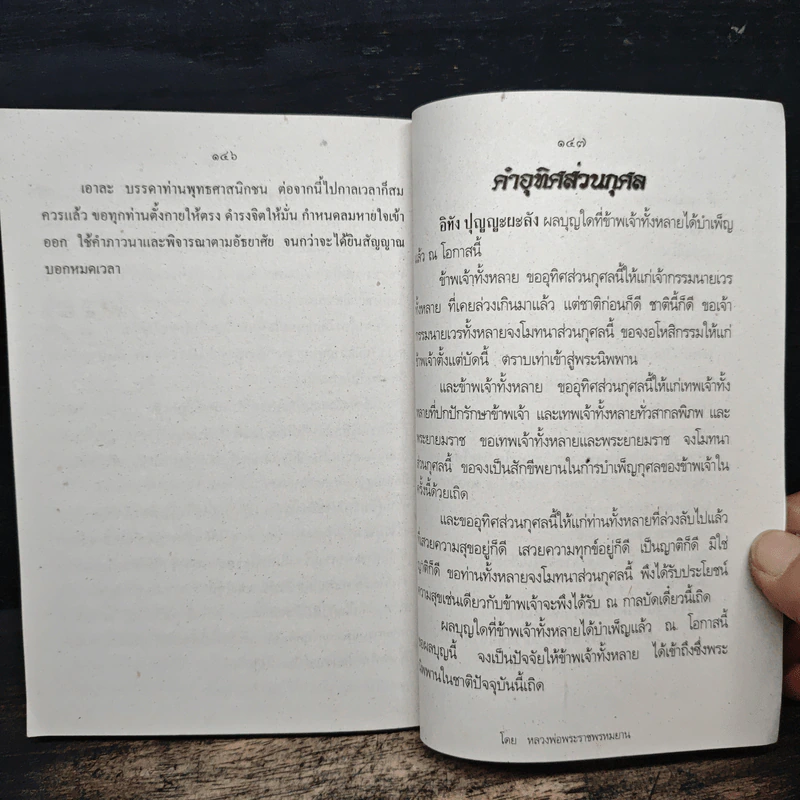 ๑๔๖
เอาละ บรรดาท่านพุทธศาสนิกชน ต่อจากนี้ไปกาลเวลาก็สม
ควรแล้ว ขอทุกท่านตั้งกายให้ตรง ดำรงจิตให้มั่น กำหนดลมหายใจเข้า
ออก ใช้คำภาวนาและพิจารณาตามอัธยาศัย จนกว่าจะได้ยินสัญญาณ
บอกหมดเวลา
๑๔๗
คำอุทิศส่วนกุศล
อิทัง ปุญญะผะลัง ผลบุญใดที่ข้าพเจ้าทั้งหลายได้บำเพ็ญ
แล้ว ณ โอกาสนี้
ข้าพเจ้าทั้งหลาย ขออุทิศส่วนกุศลนี้ให้แก่เจ้ากรรมนายเวร
ทั้งหลาย ที่เคยล่วงเกินมาแล้ว แต่ชาติก่อนก็ดี ชาตินี้ก็ดี ขอเจ้า
กรรมนายเวรทั้งหลายจงโมทนาส่วนกุศลนี้ ขอจงอโหสิกรรมให้แก่
ข้าพเจ้าตั้งแต่บัดนี้ ตราบเท่าเข้าสู่พระนิพพาน
และข้าพเจ้าทั้งหลาย ขออุทิศส่วนกุศลนี้ให้แก่เทพเจ้าทั้ง
หลายที่ปกปักรักษาข้าพเจ้า และเทพเจ้าทั้งหลายทั่วสากลพิภพ และ
พระยายมราช ขอเทพเจ้าทั้งหลายและพระยายมราช จงโมทนา
ส่วนกุศลนี้ ขอจงเป็นสักขีพยานในการบำเพ็ญกุศลของข้าพเจ้าใน
ครั้งนี้ด้วยเถิด
และขออุทิศส่วนกุศลนี้ให้แก่ท่านทั้งหลายที่ล่วงลับไปแล้ว
ที่เสวยความสุขอยู่ก็ดี เสวยความทุกข์อยู่ก็ดี เป็นญาติก็ดี มิใช่
ญาติก็ดี ขอท่านทั้งหลายจงโมทนาส่วนกุศลนี้ พึงได้รับประโยชน์
ความสุขเช่นเดียวกับข้าพเจ้าจะพึงได้รับ ณ กาลบัดเดี๋ยวนี้เถิด
ผลบุญใดที่ข้าพเจ้าทั้งหลายได้บำเพ็ญแล้ว ณ โอกาสนี้
ขอผลบุญนี้ จงเป็นปัจจัยให้ข้าพเจ้าทั้งหลาย ได้เข้าถึงซึ่งพระ
นิพพานในชาติปัจจุบันนี้เถิด
โดย หลวงพ่อพระราชพรหมยาน